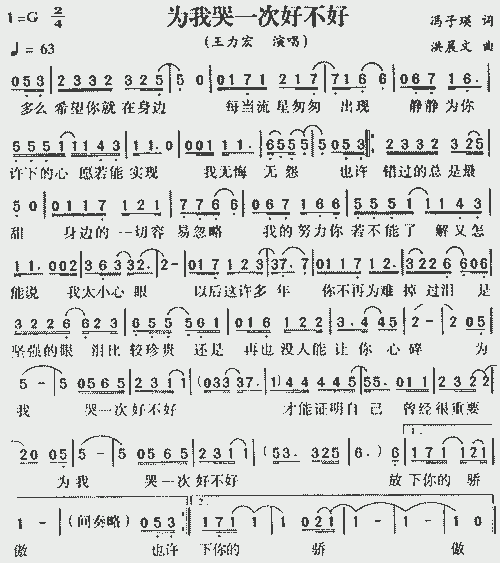 为我哭一次好不好
1=G 2/4
冯子瑛 词
♩= 63
(王力宏 演唱)
洪晨文 曲
053 | 2332 325 | 5 0 | 0171 217 | 7166 | 067 16. |
多么 希望你就在身边 每当流星匆匆 出现 静静为你
5551 1143 | 11.0 | 001 11. | 6555 | 5 053 :| 2332 325 |
许下的心愿若能实现 我无悔 无怨 也许 错过的总是最
5 0 | 0117 121 | 7766 | 067 166 | 5551 1143 |
甜 身边的一切容易忽略 我的努力你若不能了解又怎
11. 002 | 363 332. | 2 - | 017 123 | 37. 7. | 0117 12. | 3226 606 |
能说 我太小心眼 以后这许多年 你不再为难掉过泪 是
3226 623 | 655 561 | 016 122 | 3. 445 | 2 - | 2 05 |
坚强的眼泪比较珍贵 还是再也没人能让你心碎 为
5 - | 5 0565 | 2311 | (033 37. | 1) 4445 | 55. 011 | 2322 |
我 哭一次好不好 才能证明自己 曾经很重要
20 05 | 5 - | 5 0565 | 2311 | (53. 325 | 6.) 6 | 1. 171 121 |
为我 哭一次好不好 放下你的骄
1 - | (间奏略) 053 :| 2. 171 1 | 1 021 | 1 - | 1 - | 1 0 ‖
傲 也许 下你的 骄 傲